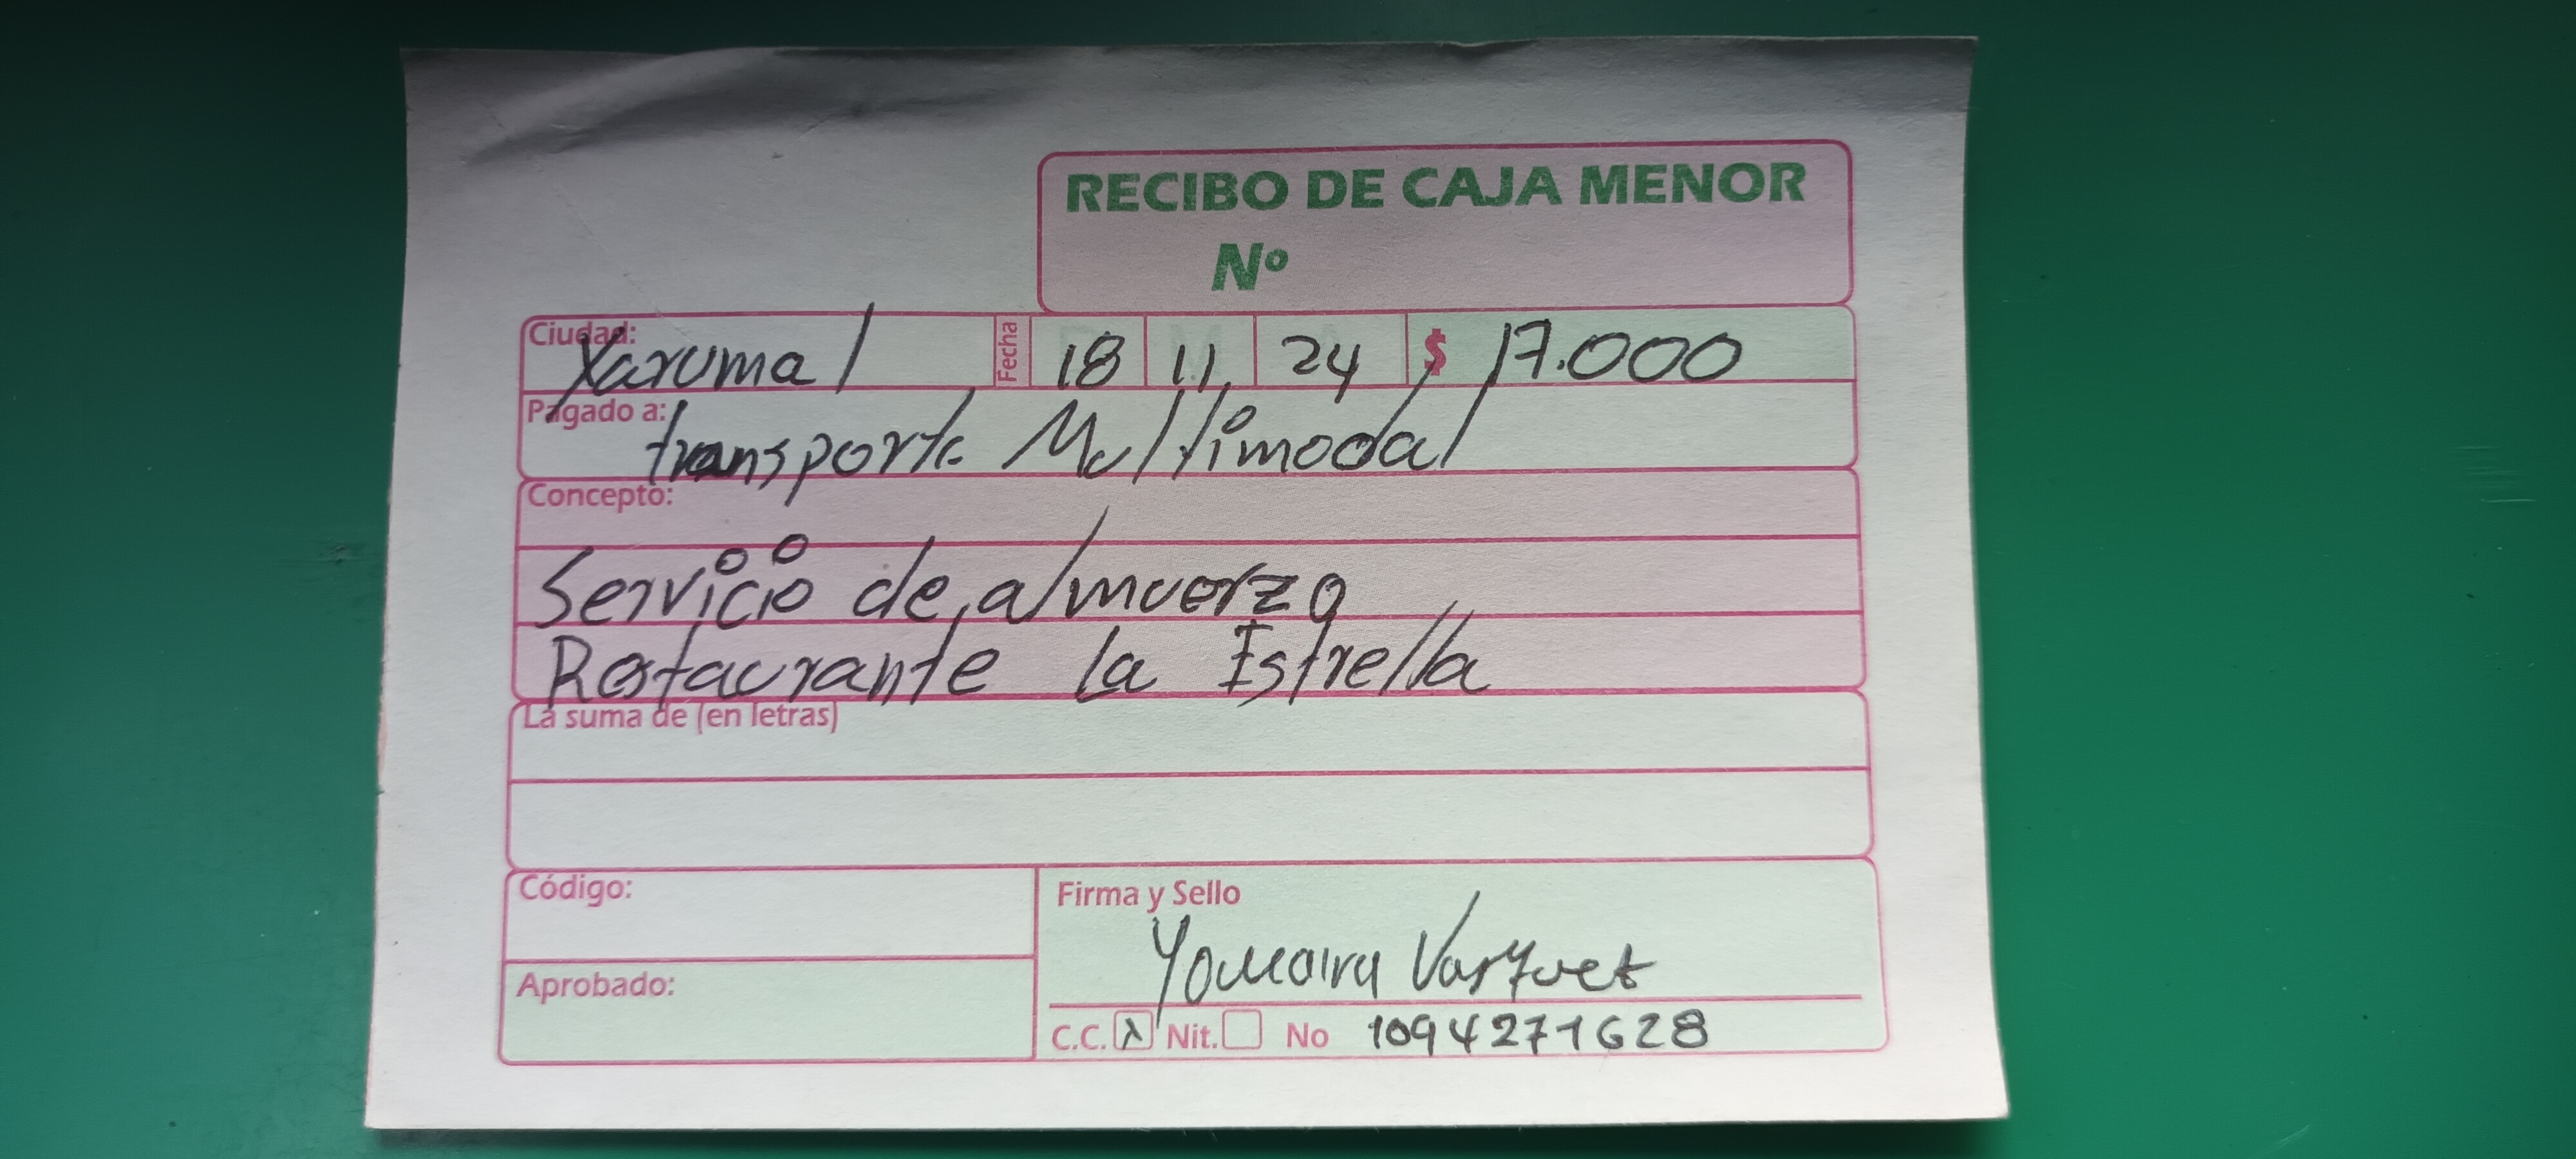 RECIBO DE CAJA MENOR
Nº
Ciudad: Yarumal Fecha 18 11 24 $ 17.000
Pagado a: transporte Multimodal
Concepto:
Servicio de almuerzo
Restaurante la Estrella
La suma de (en letras)
Código:
Aprobado:
Firma y Sello
Yomaira Vasquez
C.C. X Nit. No 1094271628